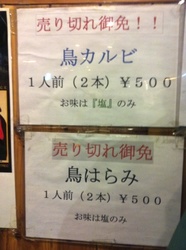 売り切れ御免！！
鳥カルビ
1人前（2本）￥500
お味は『塩』のみ
売り切れ御免
鳥はらみ
1人前（2本）￥500
お味は塩のみ